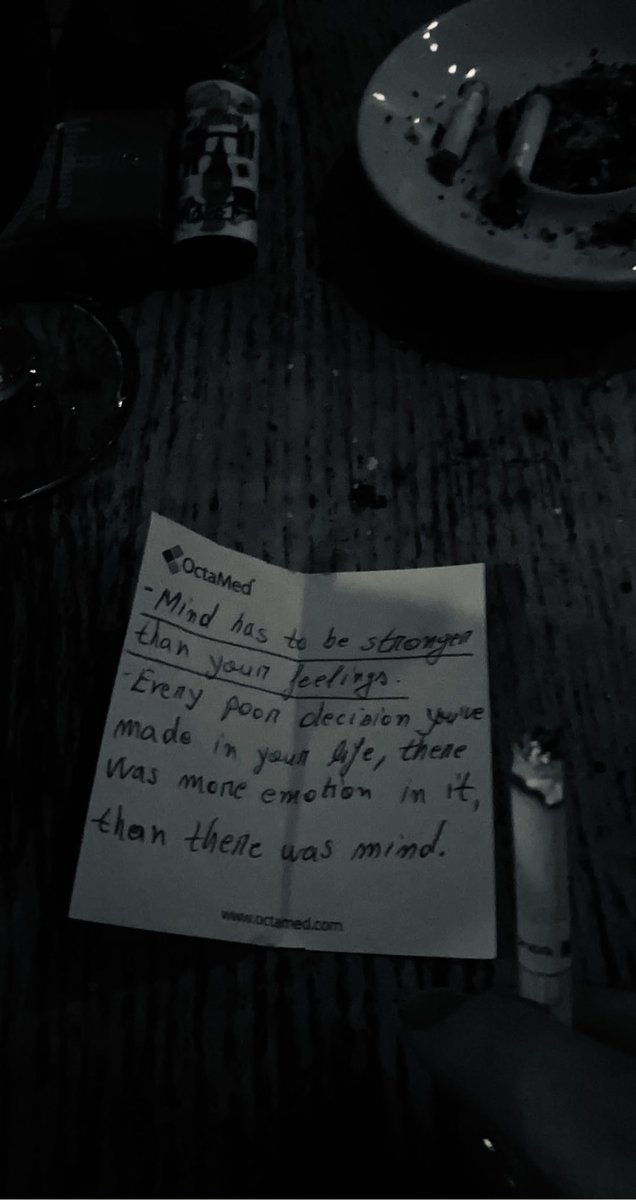 OctaMed
- Mind has to be stronger
than your feelings.
- Every poor decision you've
made in your life, there
was more emotion in it,
than there was mind.
www.octamed.com